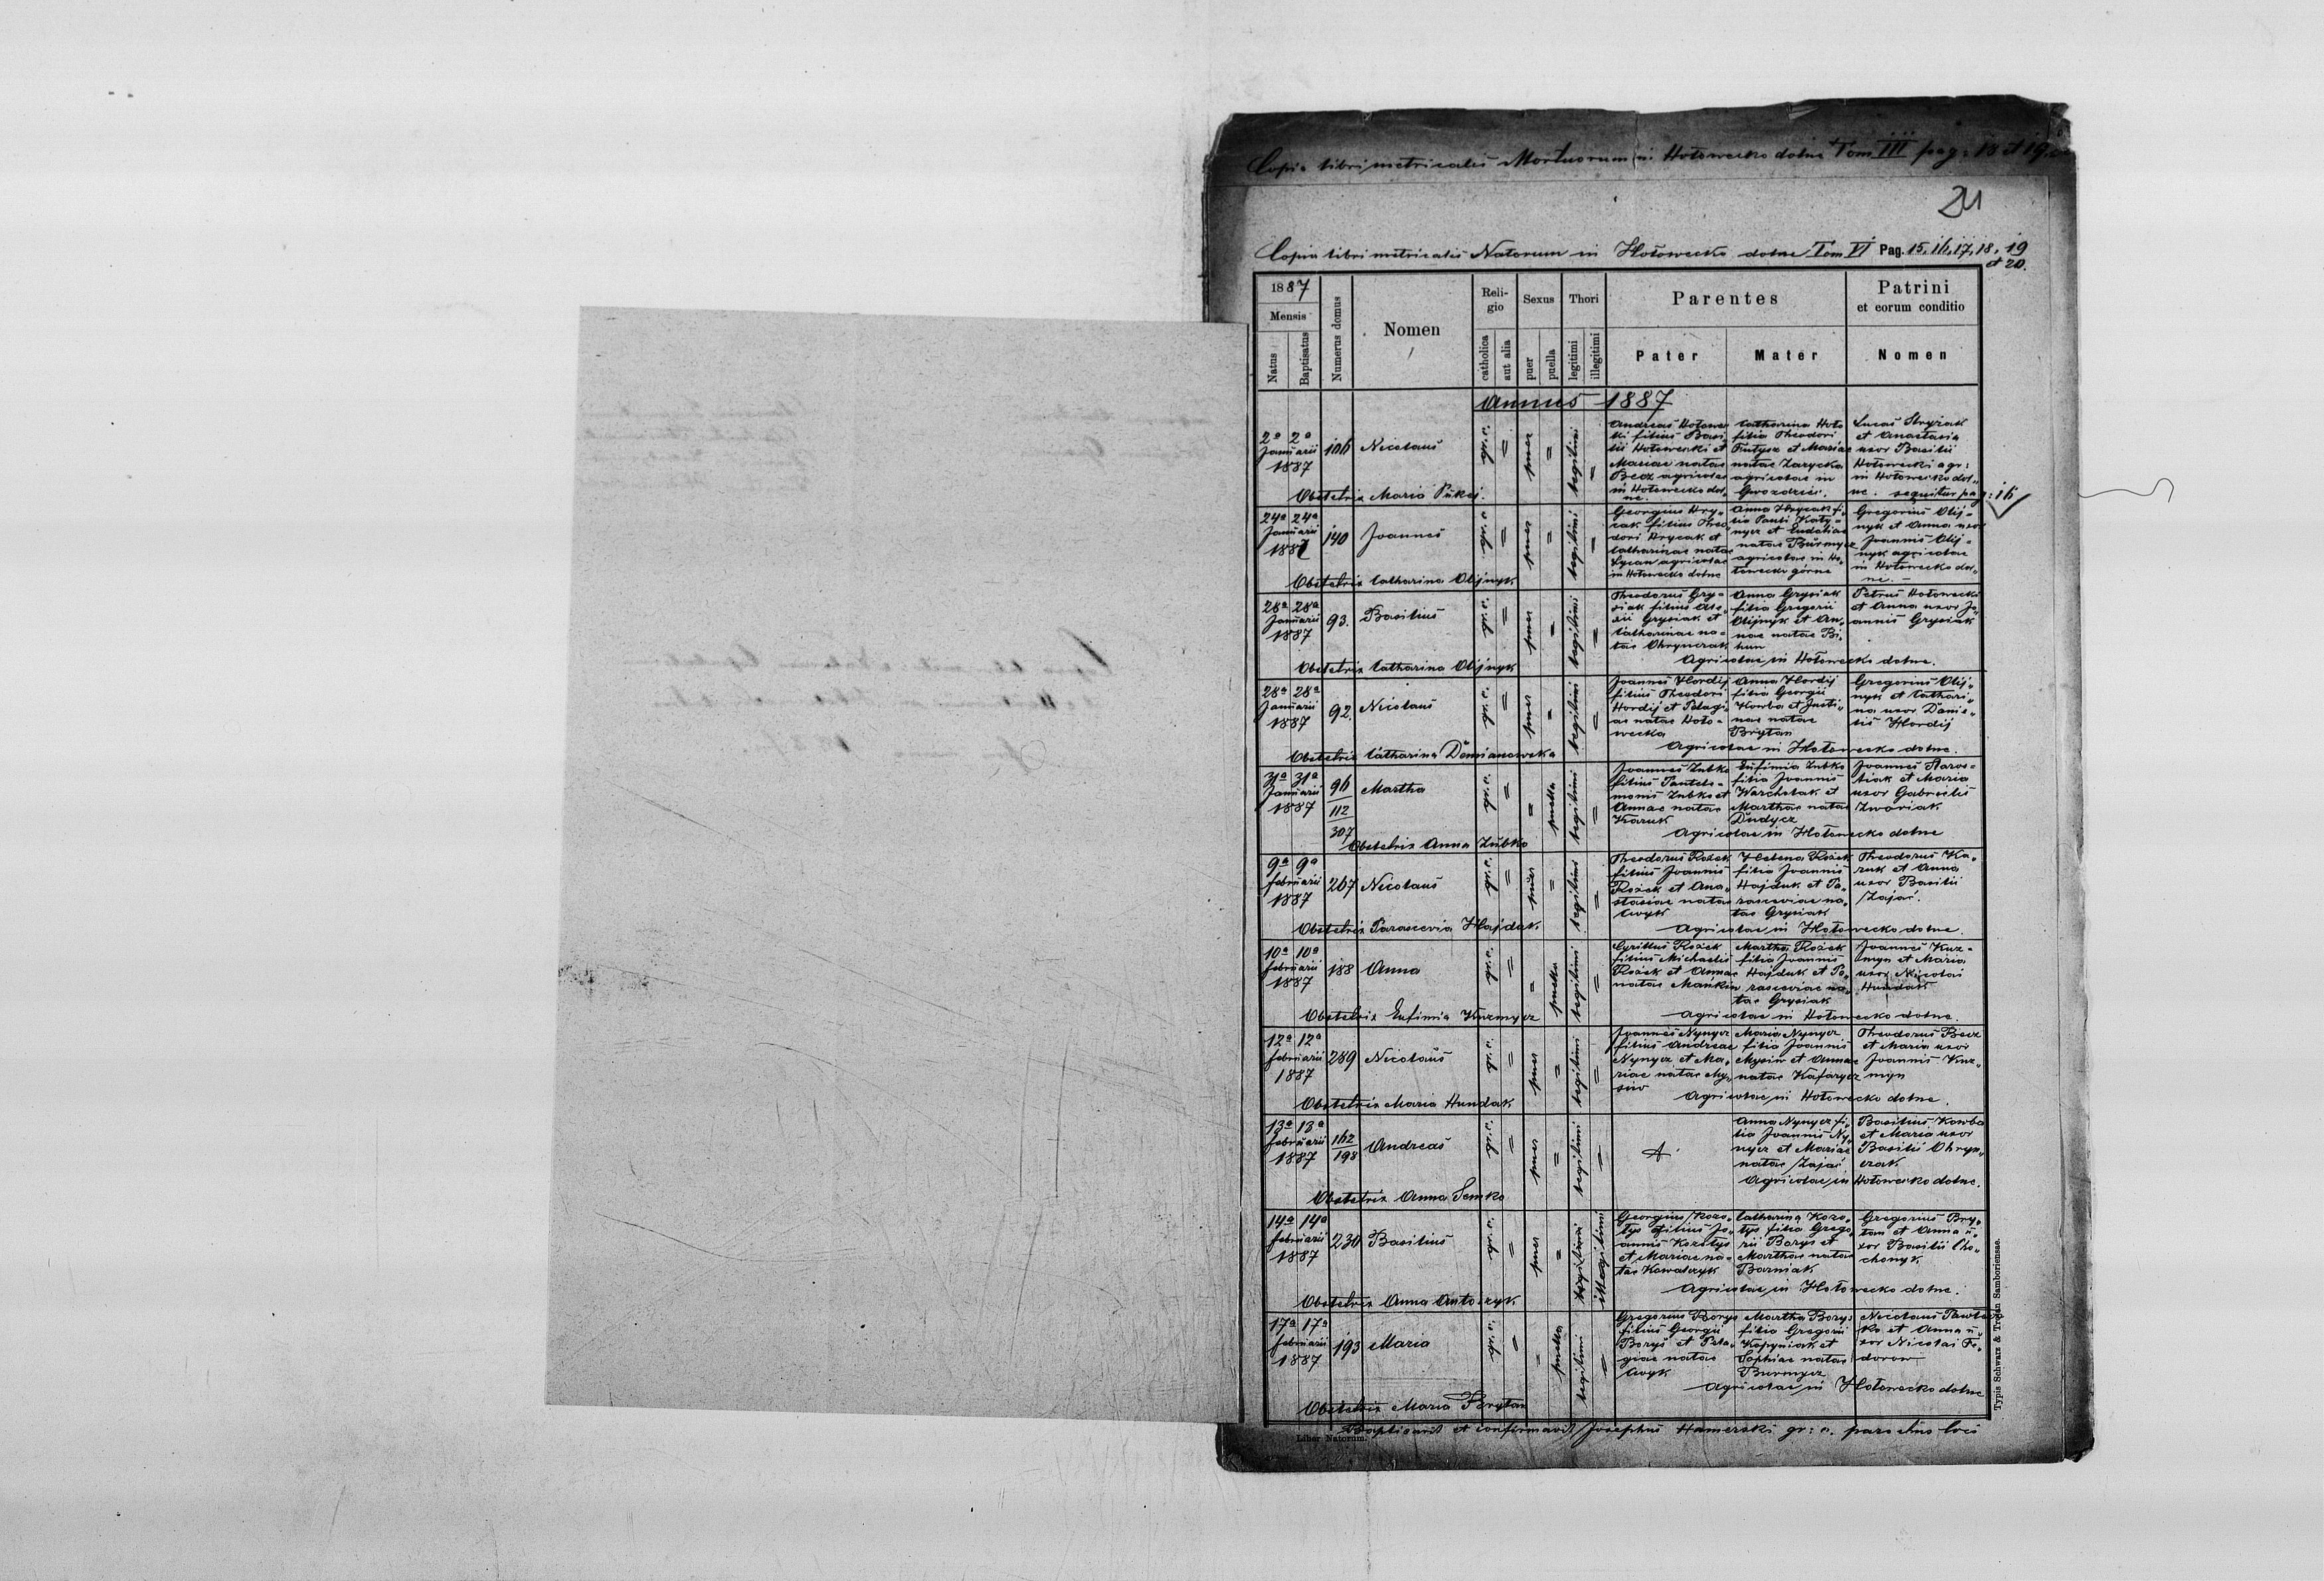 Copia libri metricalis Mortuorum in Hołowecko dolne Tom III pag: 18 et 19.
21
Copia libri metricalis Natorum in Hołowecko dolne Tom VI Pag. 15, 16, 17, 18, 19
et 20.
1887
Mensis
Natus
Baptisatus
Numerus domus
Nomen
Religio
catholica
aut alia
Sexus
puer
puella
Thori
legitimi
illegitimi
Parentes
Pater
Mater
Patrini
et eorum conditio
Nomen
Annus 1887
2a 2a
Januarii
1887
106
Nicolaus
gr. c.
=
puer
=
legitimi
=
Andreas Hołowec-
ki filius Basi-
lii Hołowecki et
Mariae natae
Becz agricolae
in Hołowecko dol-
ne.
Catharina Hoło
filia Theodori
Frutysz et Mariae
natae Zarycka
agricolae in
Gwozdziec.
Lucas Stryzak
et Anastasia
uxor Basilii
Hołowecki agr:
in Hołowecko dol-
ne. sequitur pag: 16
Obstetrix Maria Pukaj.
24a 24a
Januarii
1887
140
Joannes
gr. c.
=
puer
=
legitimi
=
Georgius Hry-
cak filius Theo-
dori Hrycak et
Catharinae natae
Lycan agricolae
in Hołowecko dolne
Anna Hrycak fi-
lia Pauli Katy-
nycz et Eudokiae
natae Burmycz
agricolae in Ho-
łowecko górne
Gregorius Olij-
nyk et Anna uxor
Joannis Olij-
nyk agricolae
in Hołowecko dol-
ne. –
Obstetrix Catharina Olijnyk
28a 28a
Januarii
1887
93.
Basilius
gr. c.
=
puer
=
legitimi
=
Theodorus Gry-
siak filius Ale-
xii Grysiak et
Catharinae na-
tae Ohrynczak
Anna Grysiak
filia Gregorii
Olijnyk et An-
nae natae Bi-
hun
Petrus Hołowecki
et Anna uxor Jo-
annis Grysiak
Agricolae in Hołowecko dolne.
Obstetrix Catharina Olijnyk
28a 28a
Januarii
1887
92.
Nicolaus
gr. c.
=
puer
=
legitimi
=
Joannes Hordij
filius Theodori
Hordij et Pelagi-
ae natae Hoło-
wecka
Anna Hordij
filia Georgii
Kowba et Justi-
nae natae
Brytan
Gregorius Olij-
nyk et Cathari-
na uxor Danie-
lis Hordij
Agricolae in Hołowecko dolne.
Obstetrix Catharina Demianowska
31a 31a
Januarii
1887
96
112
307
Martha
gr. c.
=
=
puella
legitimi
=
Joannes Zubko
filius Pantele-
monis Zubko et
Annae natae
Karuk
Eufimia Zubko
filia Joannis
Warcholak et
Marthae natae
Dudycz
Joannes Staros-
tiak et Maria
uxor Gabrielis
Zwariak
Agricolae in Hołowecko dolne
Obstetrix Anna Zubko
9a 9a
februarii
1887
267
Nicolaus
gr. c.
=
puer
=
legitimi
=
Theodorus Rożek
filius Joannis
Rożek et Ana-
stasiae natae
Cwyk
Helena Rożek
filia Joannis
Hajduk et Pa-
rasceviae na-
tae Grysiak
Theodorus Ka-
ruk et Anna
uxor Basilii
Zając.
Agricolae in Hołowecko dolne.
Obstetrix Parascevia Hajduk
10a 10a
februarii
1887
188
Anna
gr. c.
=
=
puella
legitimi
=
Cyrillus Rożek
filius Michaelis
Rożek et Annae
natae Mańkiw
Martha Rożek
filia Joannis
Hajduk et Pa-
rasceviae na-
tae Grysiak
Joannes Kuz-
myn et Maria
uxor Nicolai
Hundak
Agricolae in Hołowecko dolne.
Obstetrix Eufimia Kuzmycz
12a 12a
februarii
1887
289
Nicolaus
gr. c.
=
puer
=
legitimi
=
Joannes Nynycz
filius Andreae
Nynycz et Ma-
riae natae My-
siw
Maria Nynycz
filia Joannis
Mysiw et Annae
natae Kafarycz
Theodorus Becz
et Maria uxor
Joannis Kuz-
myn
Agricolae in Hołowecko dolne.
Obstetrix Maria Hundak
13a 13a
februarii
1887
162
198
Andreas
gr. c.
=
puer
=
legitimi
=
Anna Nynycz fi-
lia Joannis Ny-
nycz et Mariae
natae Zając
Basilius Kowba
et Maria uxor
Basilii Ohryn-
czak
Agricolae in Hołowecko dolne.
Obstetrix Anna Semko
14a 14a
februarii
1887
230
Basilius
gr. c.
=
puer
=
legitimi
illegitimi
Georgius Kozo-
tys filius Jo-
annis Kozotys
et Mariae na-
tae Kowalczyk
Catharina Kozo-
tys filia Grego-
rii Borys et
Marthae natae
Barniak
Gregorius Bry-
tan et Anna u-
xor Basilii Cho-
chonyk
Agricolae in Hołowecko dolne.
Obstetrix Anna Antoszyk
17a 17a
februarii
1887
193
Maria
gr. c.
=
=
puella
legitimi
=
Gregorius Borys
filius Georgii
Borys et Pela-
giae natae
Cwyk
Martha Borys
filia Gregorii
Kopyniak et
Sophiae natae
Burmycz
Nicolaus Pawlisz-
ko et Anna u-
xor Nicolai Fe-
dorow
Agricolae in Hołowecko dolne
Obstetrix Maria Brytan
Baptisavit et confirmavit Josephus Hamerski gr: c. parochus loci
Liber Natorum.
Typis Schwarz & Trojan Samboriensae.